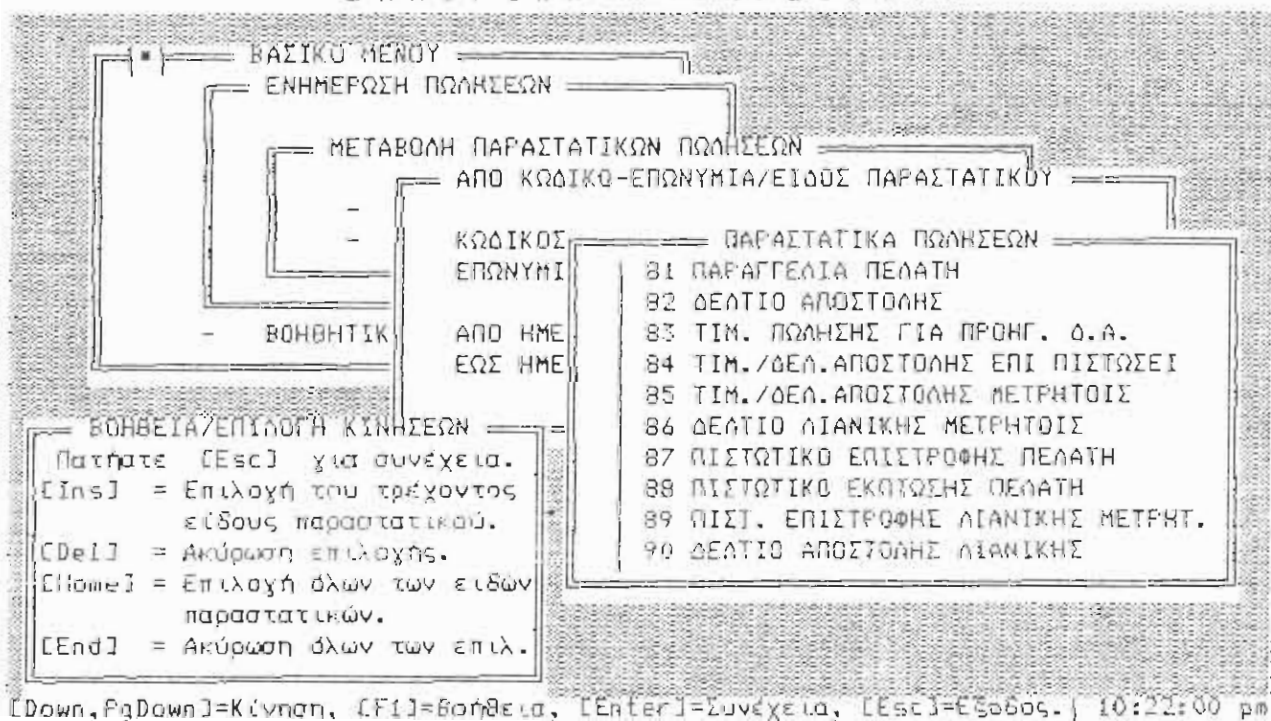 ΒΑΣΙΚΟ ΜΕΝΟΥ
ΕΝΗΜΕΡΩΣΗ ΠΩΛΗΣΕΩΝ
ΜΕΤΑΒΟΛΗ ΠΑΡΑΣΤΑΤΙΚΩΝ ΠΩΛΗΣΕΩΝ
ΑΠΟ ΚΩΔΙΚΟ-ΕΠΩΝΥΜΙΑ/ΕΙΔΟΣ ΠΑΡΑΣΤΑΤΙΚΟΥ
-
-
ΚΩΔΙΚΟΣ
ΕΠΩΝΥΜΙ
- ΒΟΗΘΗΤΙΚ
ΑΠΟ ΗΜΕ
ΕΩΣ ΗΜΕ
ΠΑΡΑΣΤΑΤΙΚΑ ΠΩΛΗΣΕΩΝ
81 ΠΑΡΑΓΓΕΛΙΑ ΠΕΛΑΤΗ
82 ΔΕΛΤΙΟ ΑΠΟΣΤΟΛΗΣ
83 ΤΙΜ. ΠΩΛΗΣΗΣ ΓΙΑ ΠΡΟΗΓ. Δ.Α.
84 ΤΙΜ./ΔΕΛ.ΑΠΟΣΤΟΛΗΣ ΕΠΙ ΠΙΣΤΩΣΕΙ
85 ΤΙΜ./ΔΕΛ.ΑΠΟΣΤΟΛΗΣ ΜΕΤΡΗΤΟΙΣ
86 ΔΕΛΤΙΟ ΛΙΑΝΙΚΗΣ ΜΕΤΡΗΤΟΙΣ
87 ΠΙΣΤΩΤΙΚΟ ΕΠΙΣΤΡΟΦΗΣ ΠΕΛΑΤΗ
88 ΠΙΣΤΩΤΙΚΟ ΕΚΠΤΩΣΗΣ ΠΕΛΑΤΗ
89 ΠΙΣΤ. ΕΠΙΣΤΡΟΦΗΣ ΛΙΑΝΙΚΗΣ ΜΕΤΡΗΤ.
90 ΔΕΛΤΙΟ ΑΠΟΣΤΟΛΗΣ ΛΙΑΝΙΚΗΣ
ΒΟΗΘΕΙΑ/ΕΠΙΛΟΓΗ ΚΙΝΗΣΕΩΝ
Πατήστε [Esc] για συνέχεια.
[Ins] = Επιλογή του τρέχοντος
είδους παραστατικού.
[Del] = Ακύρωση επιλογής.
[Home] = Επιλογή όλων των ειδών
παραστατικών.
[End] = Ακύρωση όλων των επιλ.
[Down,PgDown]=Κίνηση, [F1]=Βοήθεια, [Enter]=Συνέχεια, [Esc]=Εξοδος.| 10:22:00 pm